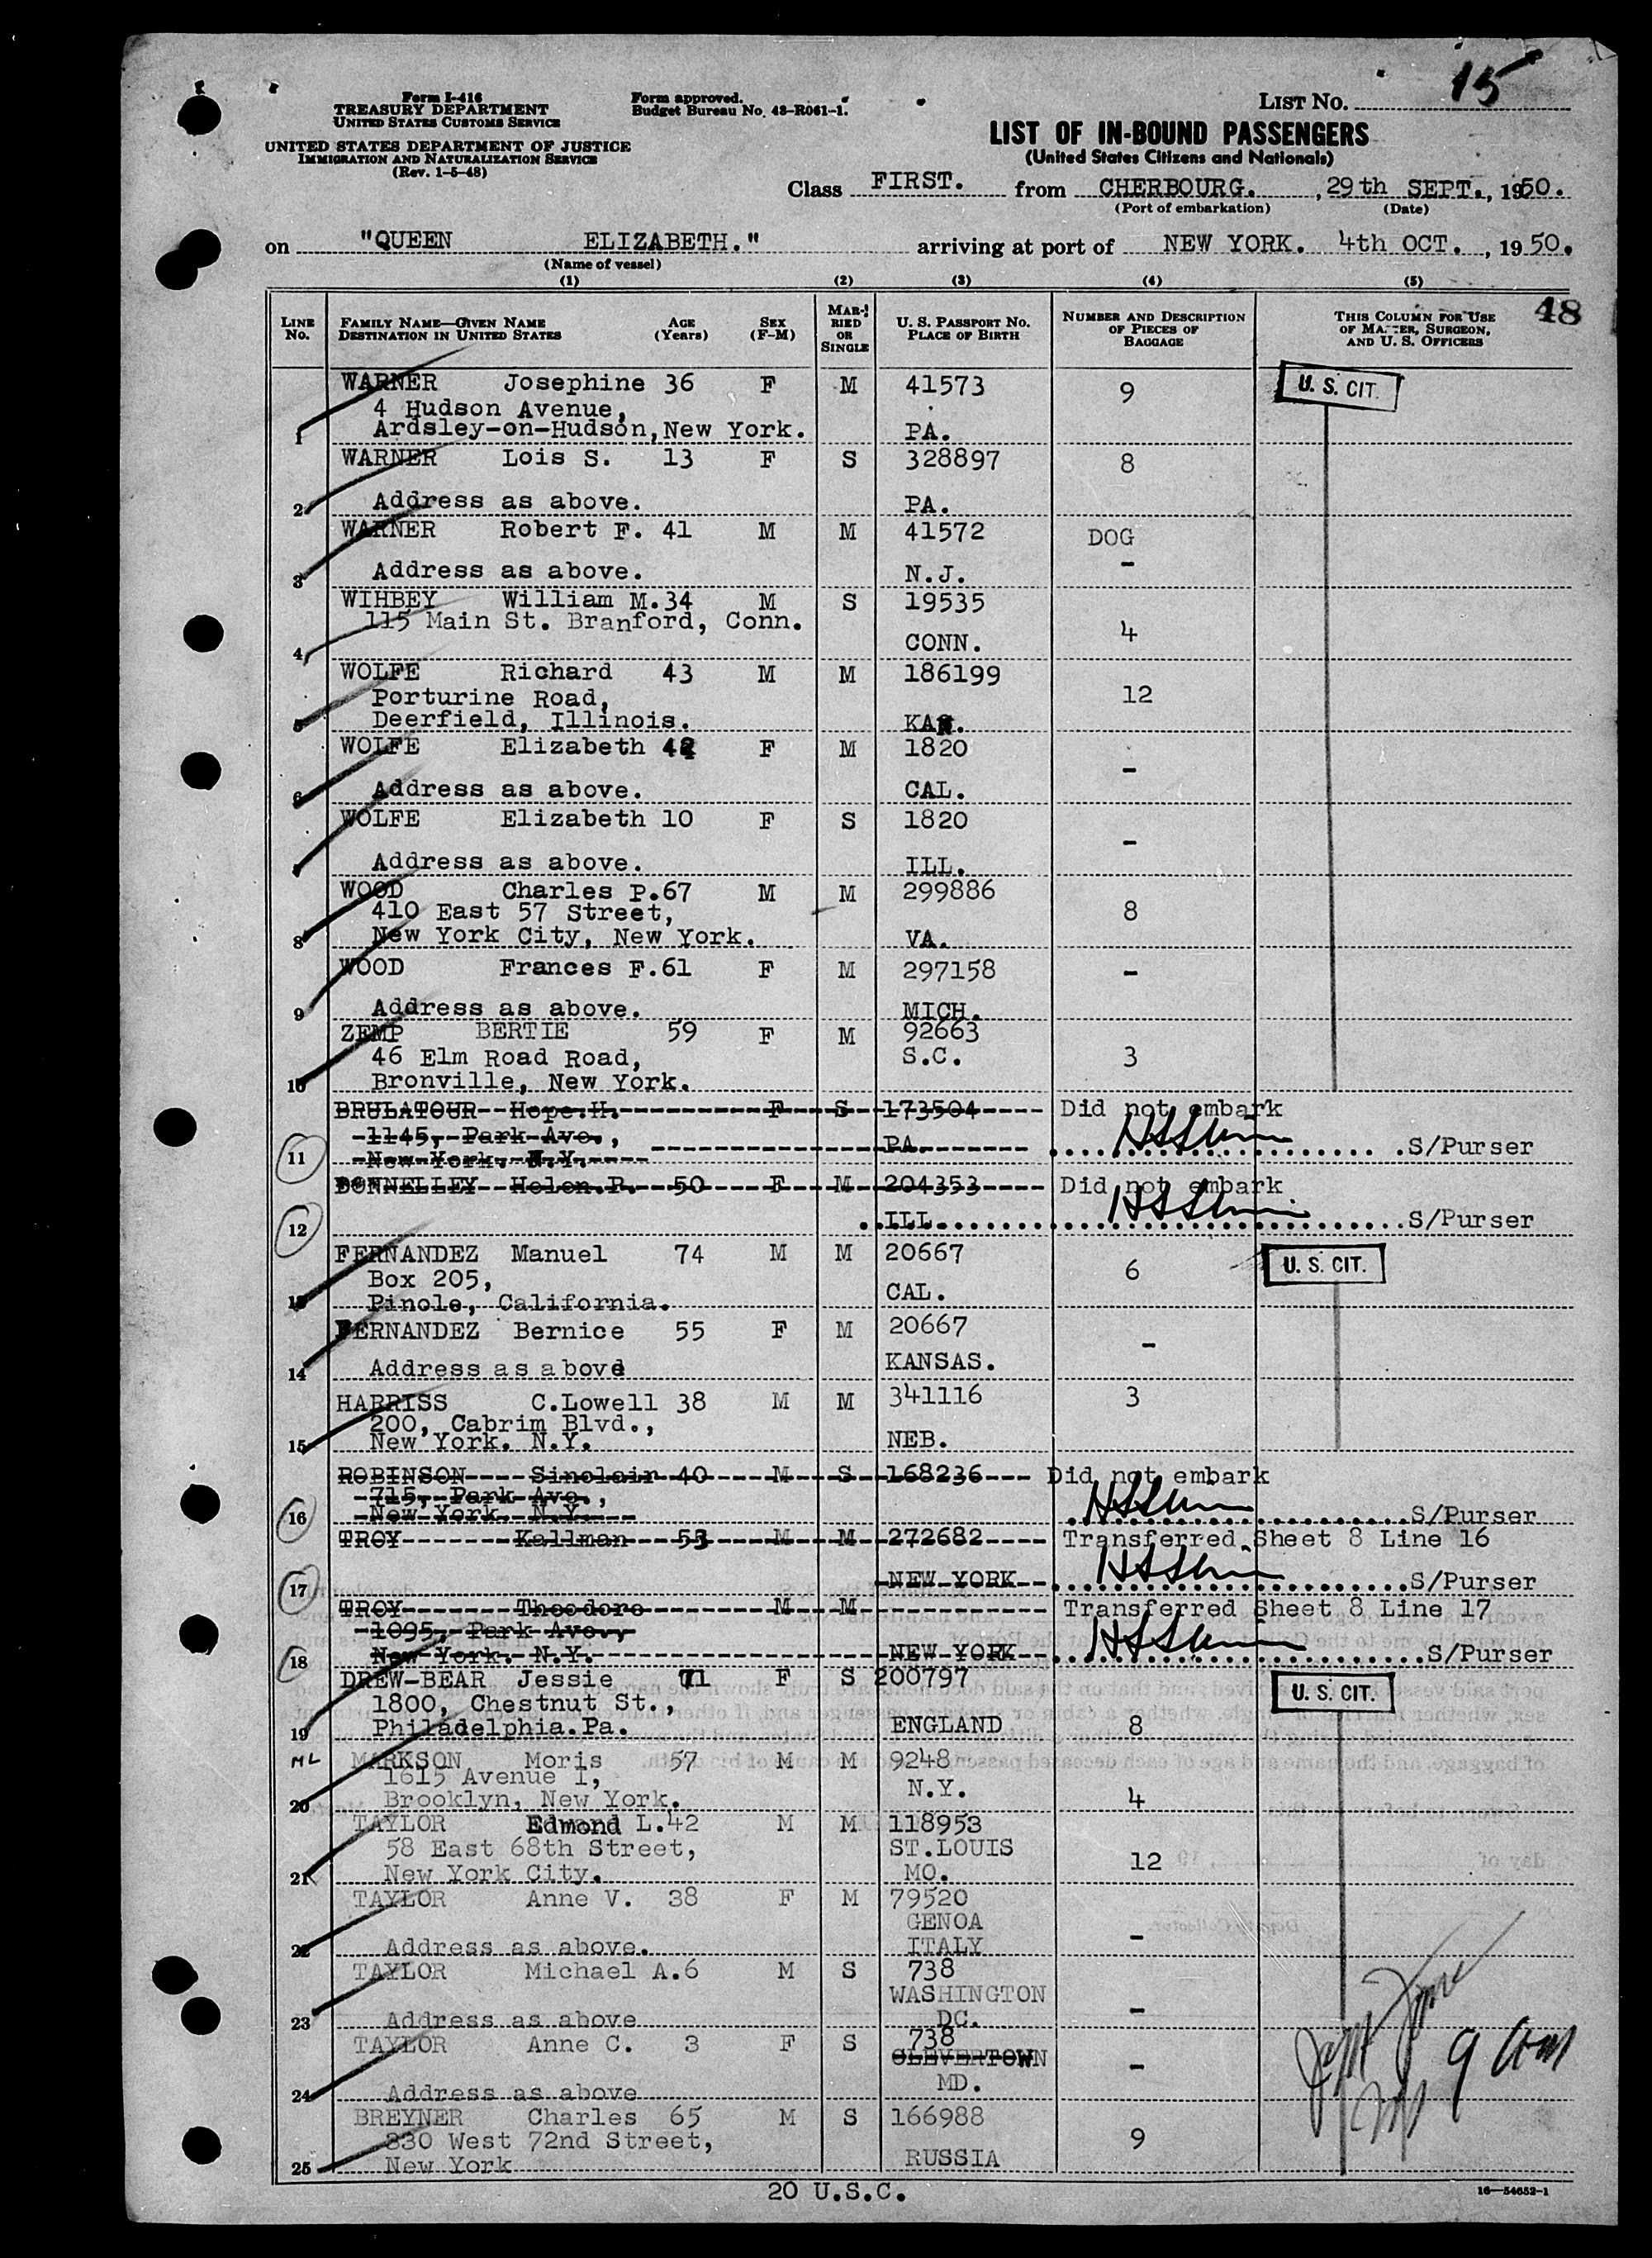 15
Form I-416
TREASURY DEPARTMENT
UNITED STATES CUSTOMS SERVICE
UNITED STATES DEPARTMENT OF JUSTICE
IMMIGRATION AND NATURALIZATION SERVICE
(Rev. 1-5-48)
Form approved.
Budget Bureau No. 43-R061-1.
LIST No.
LIST OF IN-BOUND PASSENGERS
(United States Citizens and Nationals)
Class FIRST. from CHERBOURG. , 29th SEPT., 1950.
(Port of embarkation) (Date)
on "QUEEN ELIZABETH." arriving at port of NEW YORK. 4th OCT. , 1950.
(Name of vessel)
(1) (2) (3) (4) (5)
48
LINE No. FAMILY NAME—GIVEN NAME DESTINATION IN UNITED STATES AGE (Years) SEX (F-M) MARRIED OR SINGLE U. S. PASSPORT NO. PLACE OF BIRTH NUMBER AND DESCRIPTION OF PIECES OF BAGGAGE THIS COLUMN FOR USE OF MASTER, SURGEON, AND U. S. OFFICERS
WARNER Josephine 36 F M 41573 9 U. S. CIT.
4 Hudson Avenue,
1 Ardsley-on-Hudson, New York. PA.
WARNER Lois S. 13 F S 328897 8
2 Address as above. PA.
WARNER Robert F. 41 M M 41572 DOG
3 Address as above. N.J. -
WIHBEY William M. 34 M S 19535
115 Main St. Branford, Conn. 4
4 CONN.
WOLFE Richard 43 M M 186199
Porturine Road, 12
5 Deerfield, Illinois. KAS.
WOLFE Elizabeth 42 F M 1820
6 Address as above. CAL. -
WOLFE Elizabeth 10 F S 1820
7 Address as above. ILL. -
WOOD Charles P. 67 M M 299886
410 East 57 Street, 8
8 New York City, New York. VA.
WOOD Frances F. 61 F M 297158 -
9 Address as above. MICH.
ZEMP BERTIE 59 F M 92663
46 Elm Road Road, S.C. 3
10 Bronville, New York.
BRULATOUR Hope.H. F S 173504 Did not embark
1145, Park Ave., PA.
11 New York. N.Y. S/Purser
DONNELLEY Helen.R. 50 F M 204353 Did not embark
12 ILL. S/Purser
FERNANDEZ Manuel 74 M M 20667 6 U. S. CIT.
Box 205, CAL.
13 Pinole, California.
FERNANDEZ Bernice 55 F M 20667
14 Address as above KANSAS. -
HARRISS C.Lowell 38 M M 341116 3
200, Cabrim Blvd.,
15 New York. N.Y. NEB.
ROBINSON Sinclair 40 M S 168236 Did not embark
715, Park Ave.,
16 New York. N.Y. S/Purser
TROY Kallman 53 M M 272682 Transferred Sheet 8 Line 16
17 NEW YORK S/Purser
TROY Theodore M M Transferred Sheet 8 Line 17
1095, Park Ave.,
18 New York. N.Y. NEW YORK S/Purser
DREW-BEAR Jessie 71 F S 200797 U. S. CIT.
1800, Chestnut St.,
19 Philadelphia.Pa. ENGLAND 8
ML MARKSON Moris 57 M M 9248
1615 Avenue I, N.Y.
20 Brooklyn, New York. 4
TAYLOR Edmond L. 42 M M 118953
58 East 68th Street, ST.LOUIS 12
21 New York City. MO.
TAYLOR Anne V. 38 F M 79520
GENOA
22 Address as above. ITALY -
TAYLOR Michael A. 6 M S 738
WASHINGTON
23 Address as above DC. -
TAYLOR Anne C. 3 F S 738
CLEVERTOWN
24 Address as above MD. -
BREYNER Charles 65 M S 166988
330 West 72nd Street, 9
25 New York RUSSIA
20 U.S.C.
16—54652-1